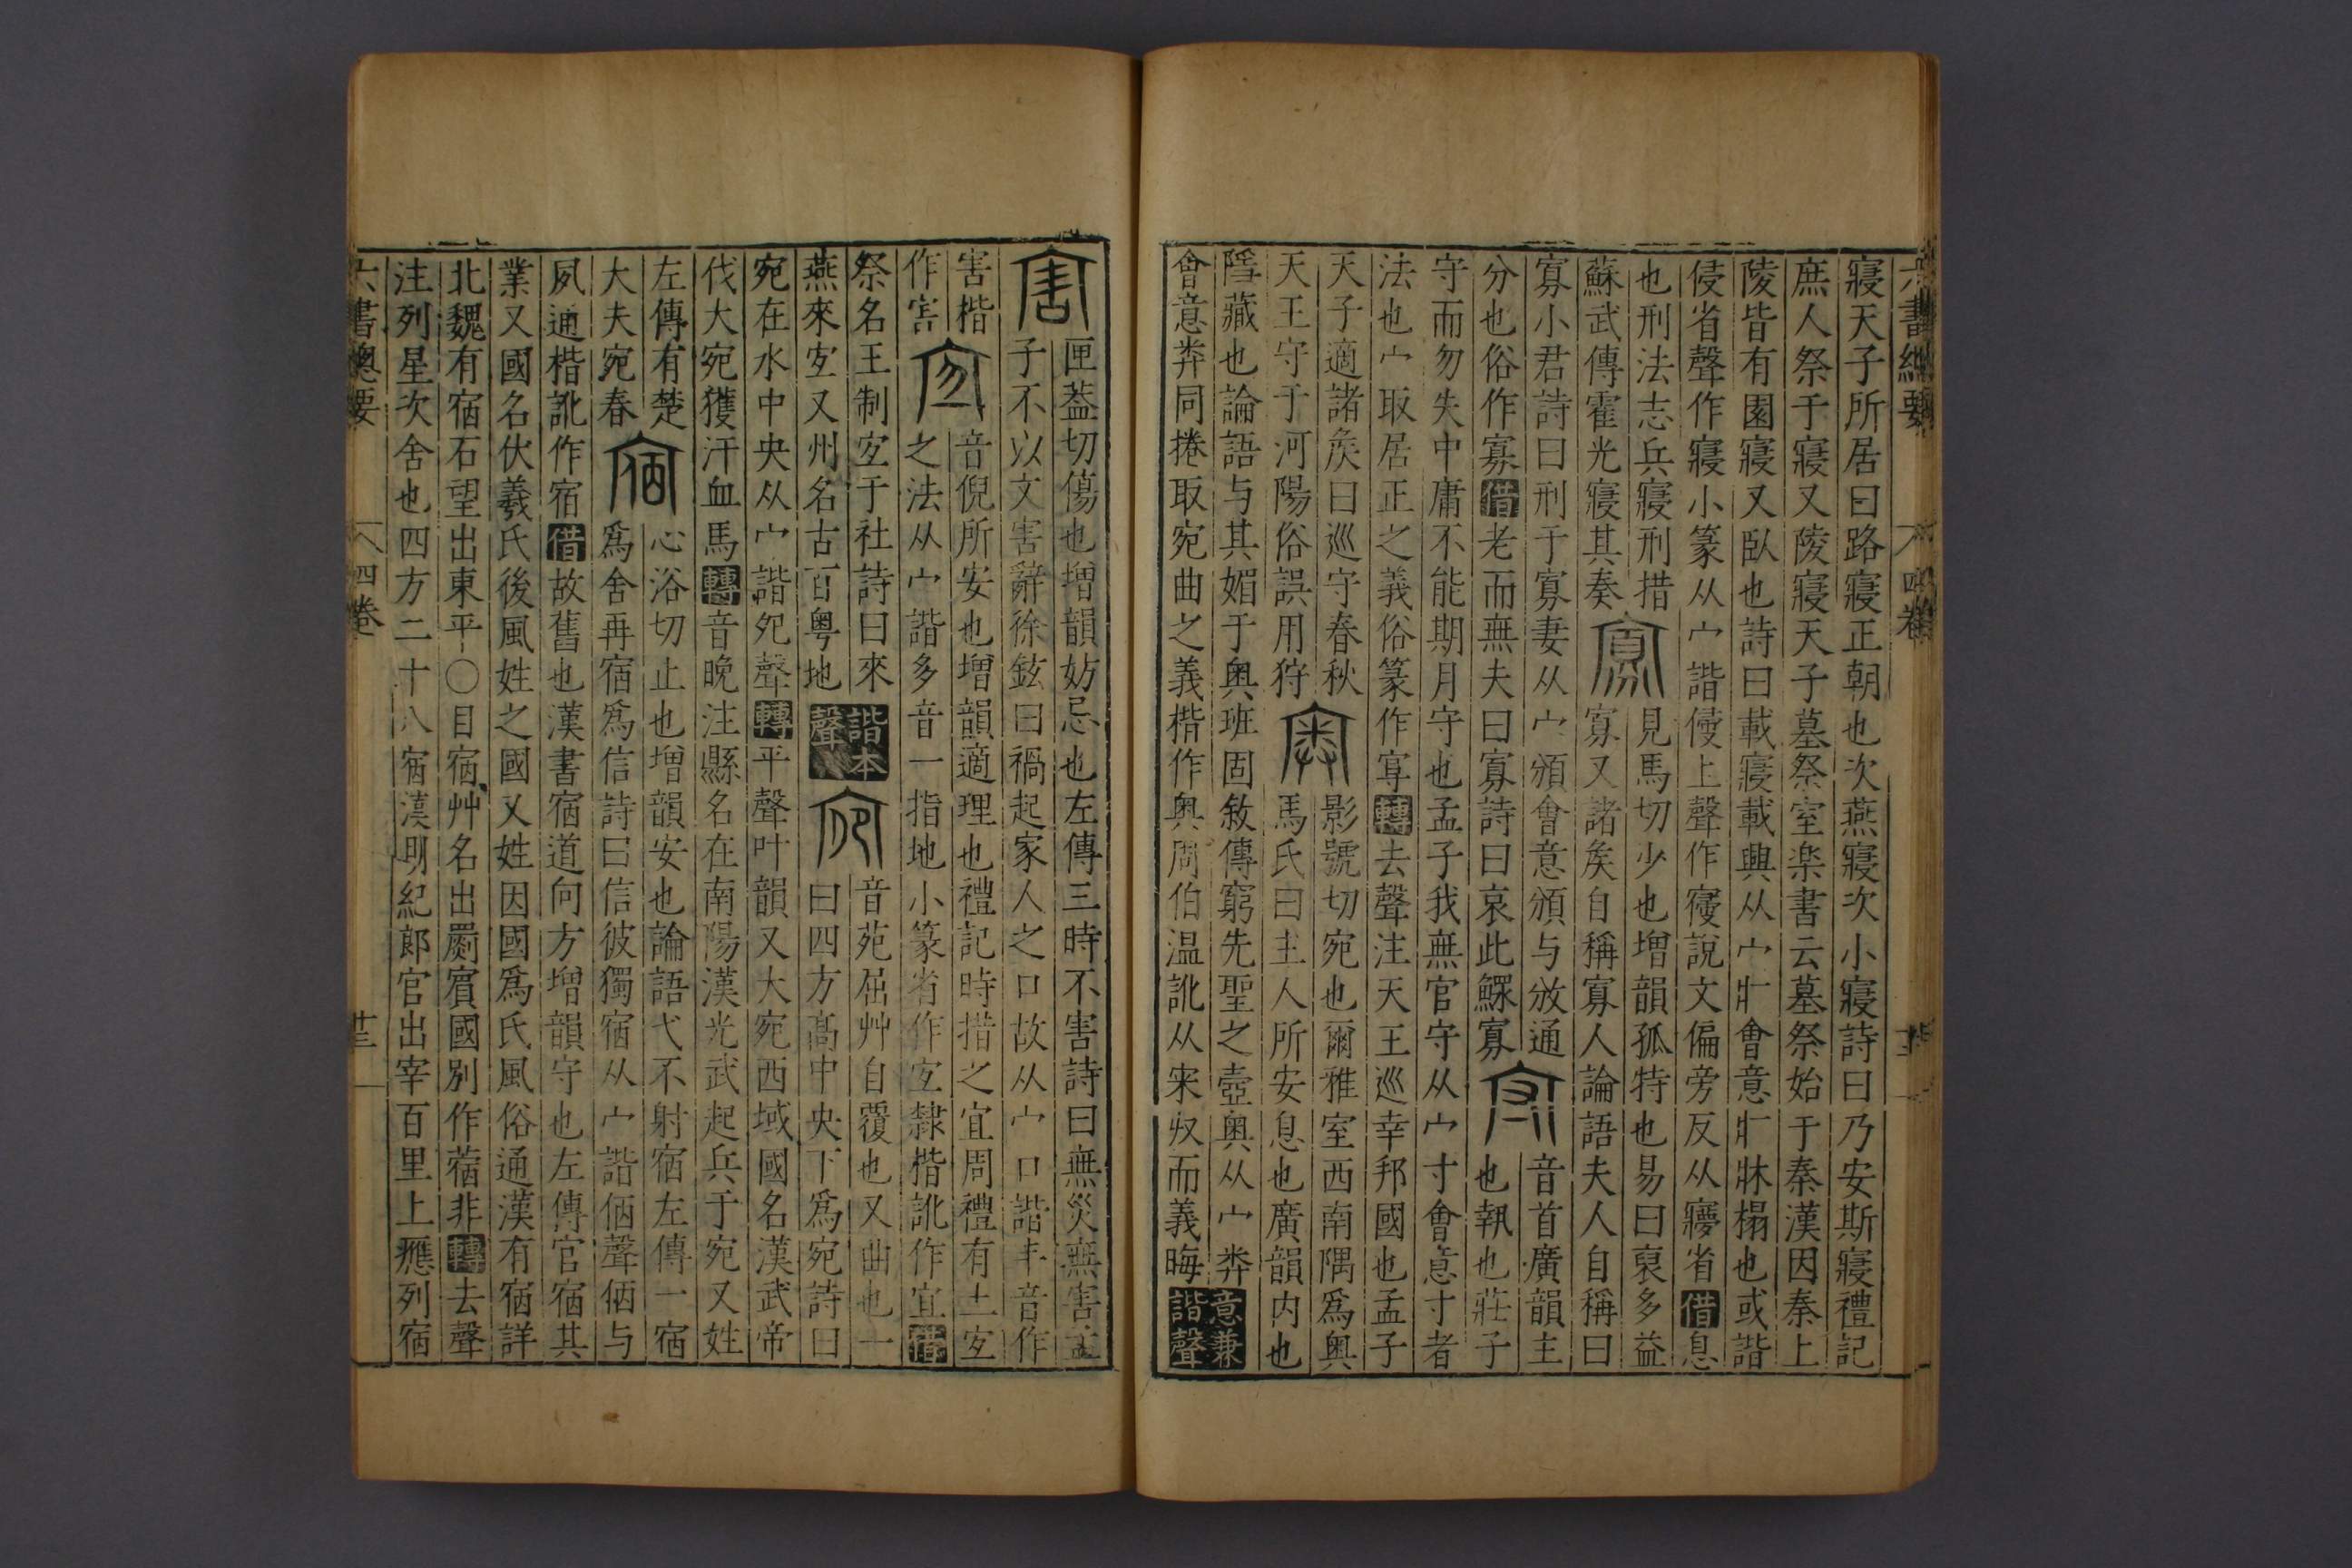 六書總要 四卷
寢天子所居曰路寢正朝也次燕寢次小寢詩曰乃安斯寢禮記
庶人祭于寢又陵寢天子墓祭室楽書云墓祭始于秦漢因秦上
陵皆有園寢又臥也詩曰載寢載興从宀爿會意爿牀榻也或諧
侵省聲作寢小篆从宀諧侵上聲作寑說文偏旁反从㝱省借息
也刑法志兵寢刑措
蘇武傳霍光寢其奏
寡見馬切少也增韻孤特也易曰裒多益
寡又諸矦自稱寡人論語夫人自稱曰
寡小君詩曰刑于寡妻从宀頒會意頒与攽通
分也俗作寡借老而無夫曰寡詩曰哀此鰥寡
守音首廣韻主
也執也莊子
守而勿失中庸不能期月守也孟子我無官守从宀寸會意寸者
法也宀取居正之義俗篆作𡬝轉去聲注天王巡幸邦國也孟子
天子適諸矦曰巡守春秋
天王守于河陽俗誤用狩
奧影號切宛也爾雅室西南隅爲奧
馬氏曰主人所安息也廣韻内也
隱藏也論語与其媚于奧班固敘傳窮先聖之壺奧从宀𢍏
會意𢍏同捲取宛曲之義楷作奥周伯温訛从宷𠬞而義晦
意兼諧聲
害匣葢切傷也增韻妨忌也左傳三時不害詩曰無災無害孟
子不以文害辭徐鉉曰禍起家人之口故从宀口諧丰音作
害楷
作害
宜音倪所安也增韻適理也禮記時措之宜周禮有土宐
之法从宀諧多音一指地小篆省作宐隸楷訛作宜借
祭名王制宐于社詩曰來
燕來宐又州名古百粵地
諧本聲
宛音苑屈艸自覆也又曲也一
曰四方高中央下爲宛詩曰
宛在水中央从宀諧夗聲轉平聲叶韻又大宛西域國名漢武帝
伐大宛獲汗血馬轉音晚注縣名在南陽漢光武起兵于宛又姓
左傳有楚
大夫宛春
宿心浴切止也增韻安也論語弋不射宿左傳一宿
爲舍再宿爲信詩曰信彼獨宿从宀諧㐁聲㐁与
夙通楷訛作宿借故舊也漢書宿道向方增韻守也左傳官宿其
業又國名伏羲氏後風姓之國又姓因國爲氏風俗通漢有宿詳
北魏有宿石望出東平○目宿艸名出罽賓國別作蓿非轉去聲
注列星次舍也四方二十八宿漢明紀郎官出宰百里上應列宿
六書總要 四卷 廿三